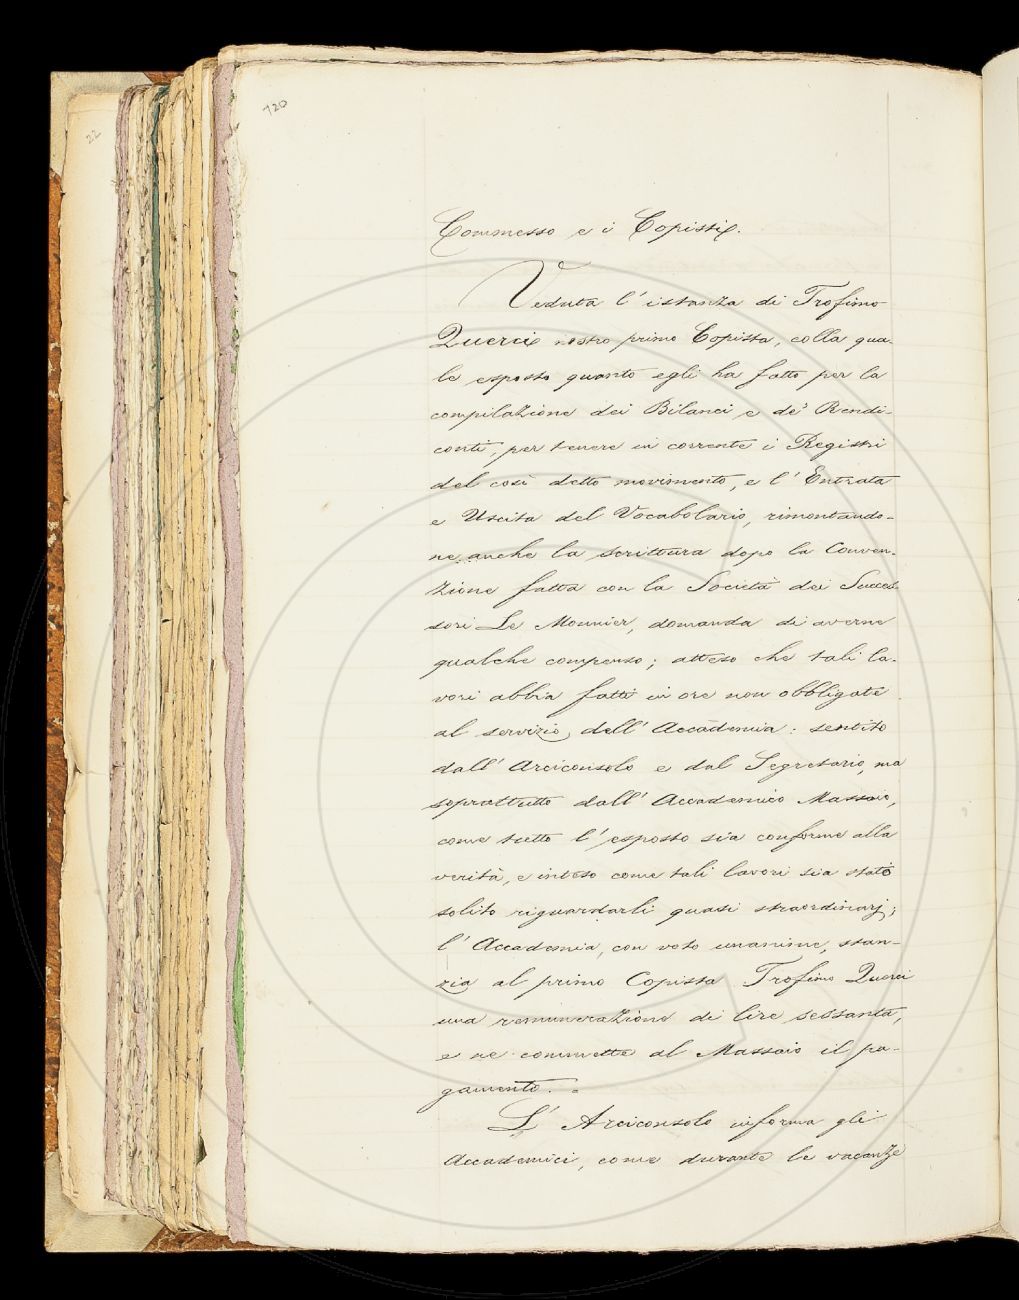 120
22
Commesso e i Copisti.
Veduta l' istanza di Trofimo
Querci nostro primo Copista, colla qua-
le esposto quanto egli ha fatto per la
compilazione dei Bilanci e de' Rendi-
conti, per tenere in corrente i Registri
del così detto movimento, e l' Entrata
e Uscita del Vocabolario, rimontando-
ne anche la scrittura dopo la Conven-
zione fatta con la Società dei Succes-
sori Le Monnier, domanda di averne
qualche compenso; atteso che tali la-
vori abbia fatti in ore non obbligate
al servizio dell' Accademia: sentito
dall' Arciconsolo e dal Segretario, ma
soprattutto dall' Accademico Massaio,
come tutto l' esposto sia conforme alla
verità, e inteso come tali lavori sia stato
solito riguardarli quasi straordinarj;
l' Accademia, con voto unanime, stan-
zia al primo Copista Trofimo Querci
una remunerazione di lire sessanta,
e ne commette al Massaio il pa-
gamento. =
L' Arciconsolo informa gli
Accademici, come durante le vacanze